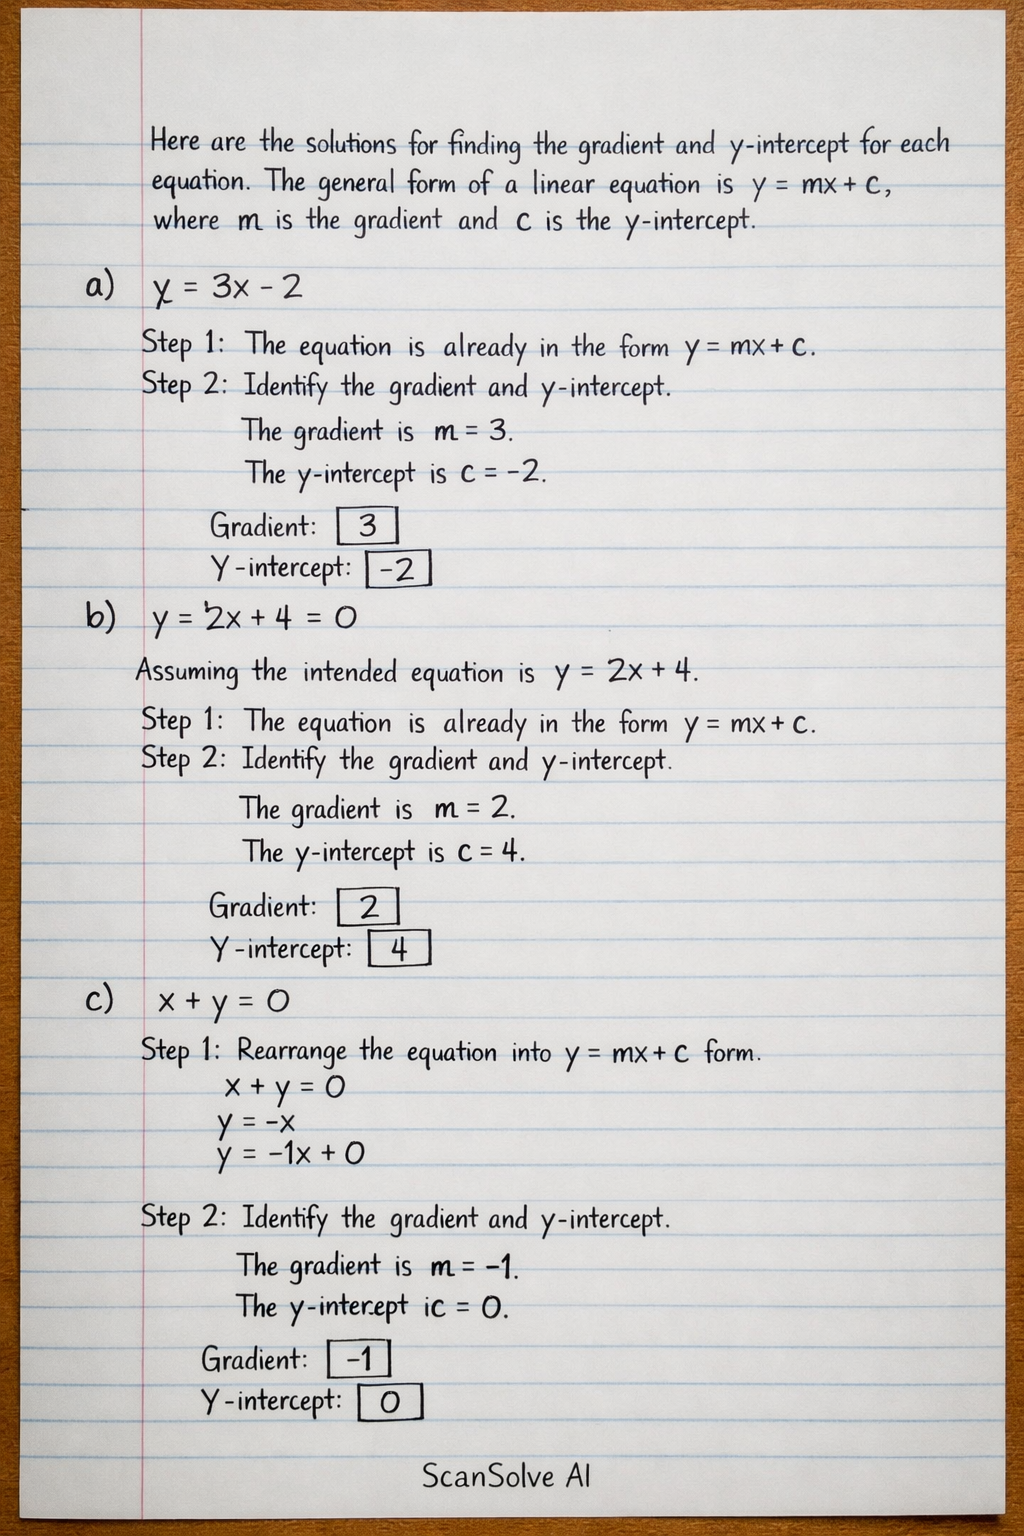 Here are the solutions for finding the gradient and y-intercept for each
equation. The general form of a linear equation is y = mx + c,
where m is the gradient and c is the y-intercept.
a) y = 3x - 2
Step 1: The equation is already in the form y = mx + c.
Step 2: Identify the gradient and y-intercept.
The gradient is m = 3.
The y-intercept is c = -2.
Gradient: 3
Y-intercept: -2
b) y = 2x + 4 = 0
Assuming the intended equation is y = 2x + 4.
Step 1: The equation is already in the form y = mx + c.
Step 2: Identify the gradient and y-intercept.
The gradient is m = 2.
The y-intercept is c = 4.
Gradient: 2
Y-intercept: 4
c) x + y = 0
Step 1: Rearrange the equation into y = mx + c form.
x + y = 0
y = -x
y = -1x + 0
Step 2: Identify the gradient and y-intercept.
The gradient is m = -1.
The y-intercept ic = 0.
Gradient: -1
Y-intercept: 0
ScanSolve AI